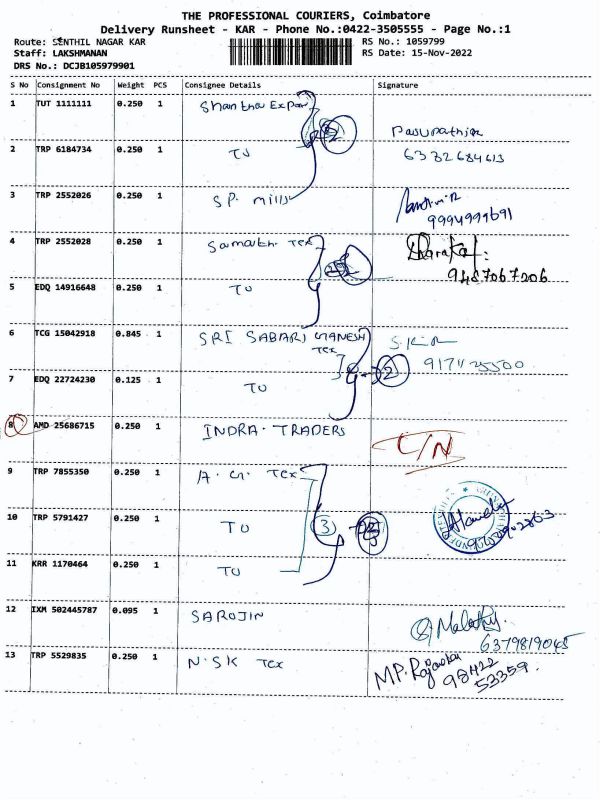 THE PROFESSIONAL COURIERS, Coimbatore
Delivery Runsheet - KAR - Phone No.:0422-3505555 - Page No.:1
Route: SENTHIL NAGAR KAR RS No.: 1059799
Staff: LAKSHMANAN RS Date: 15-Nov-2022
DRS No.: DCJB105979901
S No Consignment No Weight PCS Consignee Details Signature
1 TUT 1111111 0.250 1
2 TRP 6184734 0.250 1 TO
3 TRP 2552026 0.250 1 S.P. mills
9994999691
4 TRP 2552028 0.250 1 Tex
9487067206
5 EDQ 14916648 0.250 1 TO
6 TCG 15042918 0.845 1 SRI SABARI GANESH
Tex
7 EDQ 22724230 0.125 1 TO 2
8 AMD 25686715 0.250 1 INDRA. TRADERS C/N
9 TRP 7855350 0.250 1 Tex
10 TRP 5791427 0.250 1 TO 3
11 KRR 1170464 0.250 1 TO
12 IXM 502445787 0.095 1 SAROJIN
6379819045
13 TRP 5529835 0.250 1 N.SK Tex
98422
53359